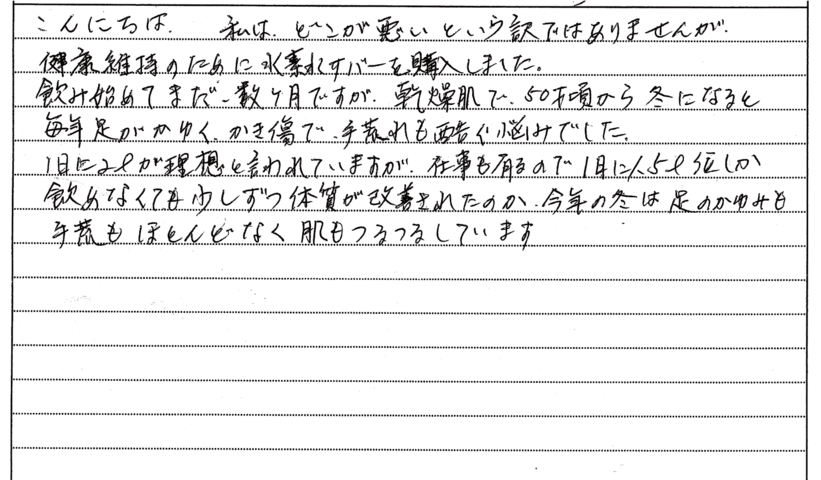 こんにちは. 私は、どこが悪いという訳ではありませんが.
健康維持のために水素水サーバーを購入しました。
飲み始めてまだ、数ヶ月ですが、乾燥肌で、50才頃から冬になると
毎年足がかゆく、かき傷で、手荒れも酷く悩みでした。
1日に2ℓが理想と言われていますが、仕事も有るので1日に1.5ℓ位しか
飲めなくても少しずつ体質が改善されたのか、今年の冬は足のかゆみも
手荒もほとんどなく肌もつるつるしています